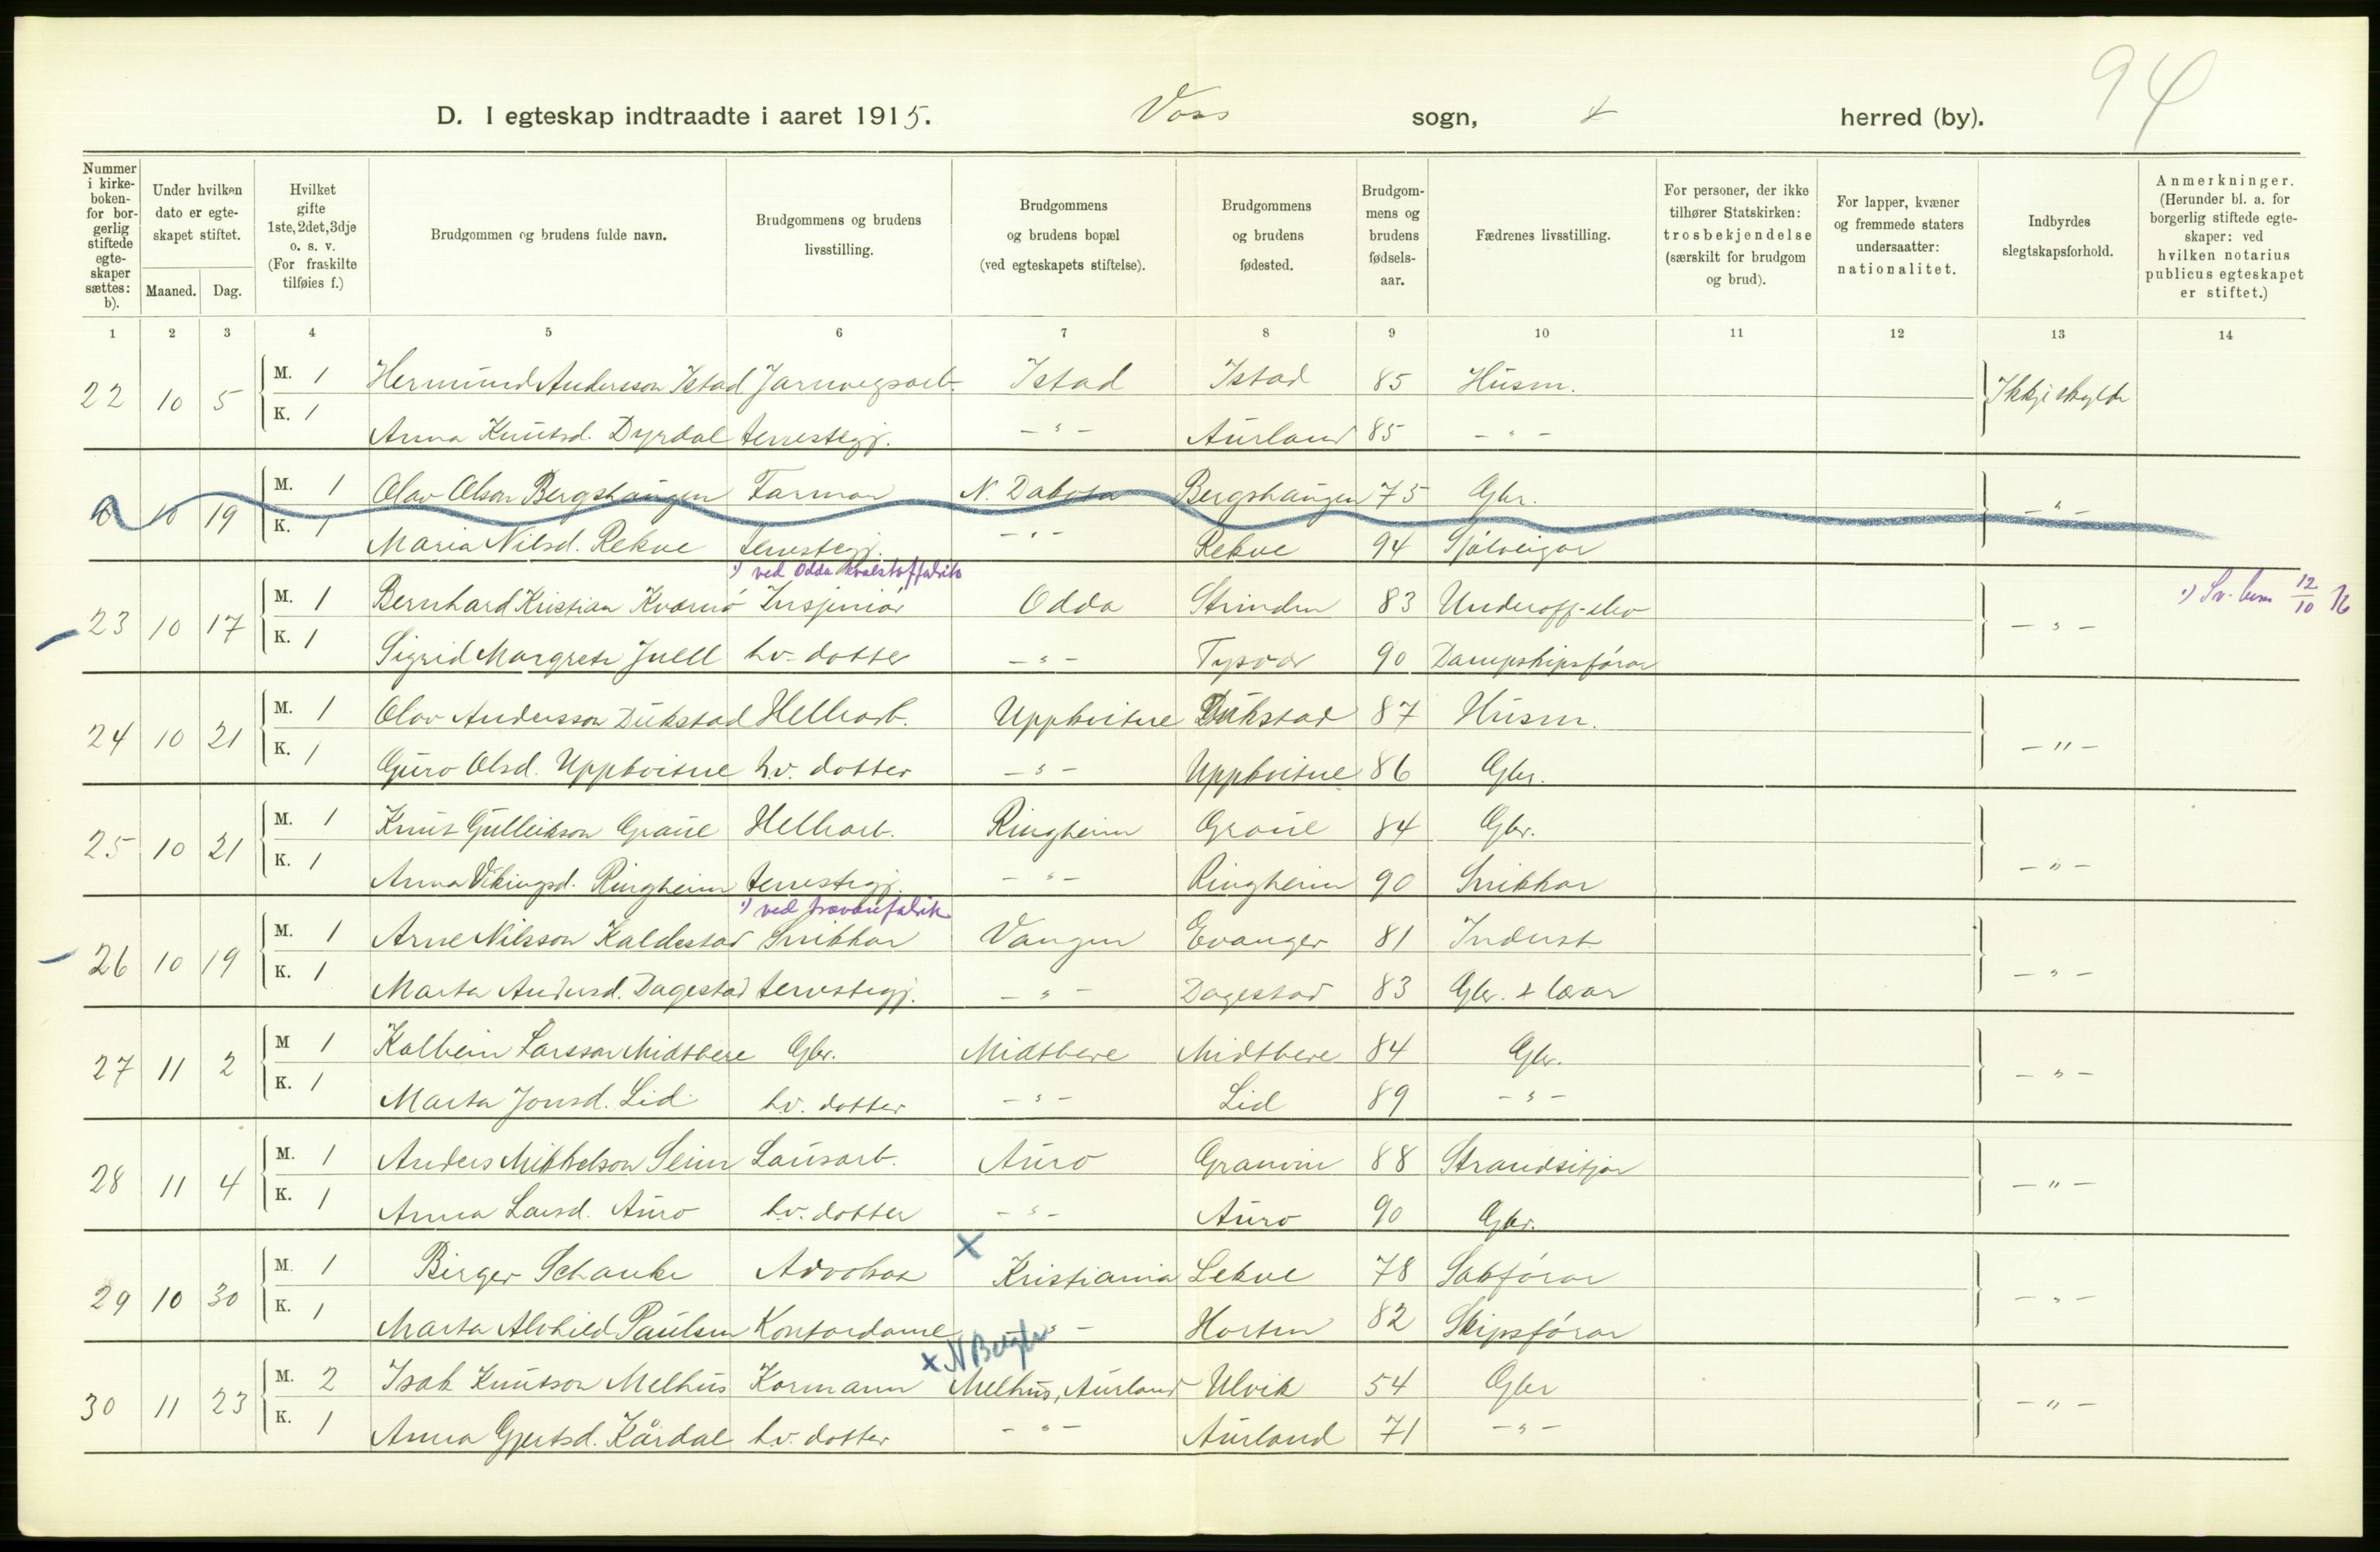 94
D. I egteskap indtraadte i aaret 1915. Voss sogn, herred (by).
Nummer i kirkeboken- for borgerlig stiftede egteskaper sættes: b).
Under hvilken dato er egteskapet stiftet.
Maaned. Dag.
Hvilket gifte 1ste, 2det, 3dje o. s. v. (For fraskilte tilføies f.)
Brudgommen og brudens fulde navn.
Brudgommens og brudens livsstilling.
Brudgommens og brudens bopæl (ved egteskapets stiftelse).
Brudgommens og brudens fødested.
Brudgommens og brudens fødselsaar.
Fædrenes livsstilling.
For personer, der ikke tilhører Statskirken: trosbekjendelse (særskilt for brudgom og brud).
For lapper, kvæner og fremmede staters undersaatter: nationalitet.
Indbyrdes slegtskapsforhold.
Anmerkninger. (Herunder bl. a. for borgerlig stiftede egteskaper: ved hvilken notarius publicus egteskapet er stiftet.)
1 2 3 4 5 6 7 8 9 10 11 12 13 14
22 10 5 M. 1 Hermund Andersson Istad Jarnvegsarb. Istad Istad 85 Husm. Ikkje skylde
K. 1 Anna Knutsd. Dyrdal tenestegj. - " - Aurland 85 - " -
10 19 M. 1 Olav Olson Bergshaugen Farmar N. Dakota Bergshaugen 75 Gbr. - " -
K. 1 Maria Nilsd. Rekve tenestegj. - " - Rekve 94 Sjølveigar
¹) ved Odda kvælstoffabrik
23 10 17 M. 1 Bernhard Kristian Kværnö Insjeniör Odda Strinden 83 Underoff-elev - " - ¹) Sv. 12/10 16
K. 1 Sigrid Margrete Juell hv. dotter - " - Tysvær 90 Dampskipsförar
24 10 21 M. 1 Olav Andersson Dukstad Hellearb. Uppkvitne Dukstad 87 Husm. - " -
K. 1 Guro Olsd. Uppkvitne hv. dotter - " - Uppkvitne 86 Gbr.
25 10 21 M. 1 Knut Gulleikson Graue Hellearb. Ringheim Graue 84 Gbr. - " -
K. 1 Anna Vikingsd. Ringheim tenestegj. - " - Ringheim 90 Snikkar
¹) ved trævarefabrik
26 10 19 M. 1 Arne Nilsson Kaldestad Snikkar Vangen Evanger 81 Inderst - " -
K. 1 Marta Andersd. Dagestad tenestegj. - " - Dagestad 83 Gbr. & lærar
27 11 2 M 1 Kolbein Larsson Midtbere Gbr. Midtbere Midtbere 84 Gbr. - " -
K. 1 Marta Jonsd. Lid hv. dotter - " - Lid 89 - " -
28 11 4 M. 1 Anders Mikkelson Seim Lausarb. Auro Granvin 88 Strandsitjar - " -
K. 1 Anna Larsd. Auro hv. dotter - " - Auro 90 Gbr.
x
29 10 30 M. 1 Birger Schanke Advokat Kristiania Lekve 78 Sakförar - " -
K. 1 Marta Alvhild Paulsen Kontordame - " - Horten 82 Skipsförar
x N Bergh
30 11 23 M. 2 Isak Knutson Melhus Kormann Melhus, Aurland Ulvik 54 Gbr - " -
K. 1 Anna Gjertsd. Kårdal hv. dotter - " - Aurland 71 - " -